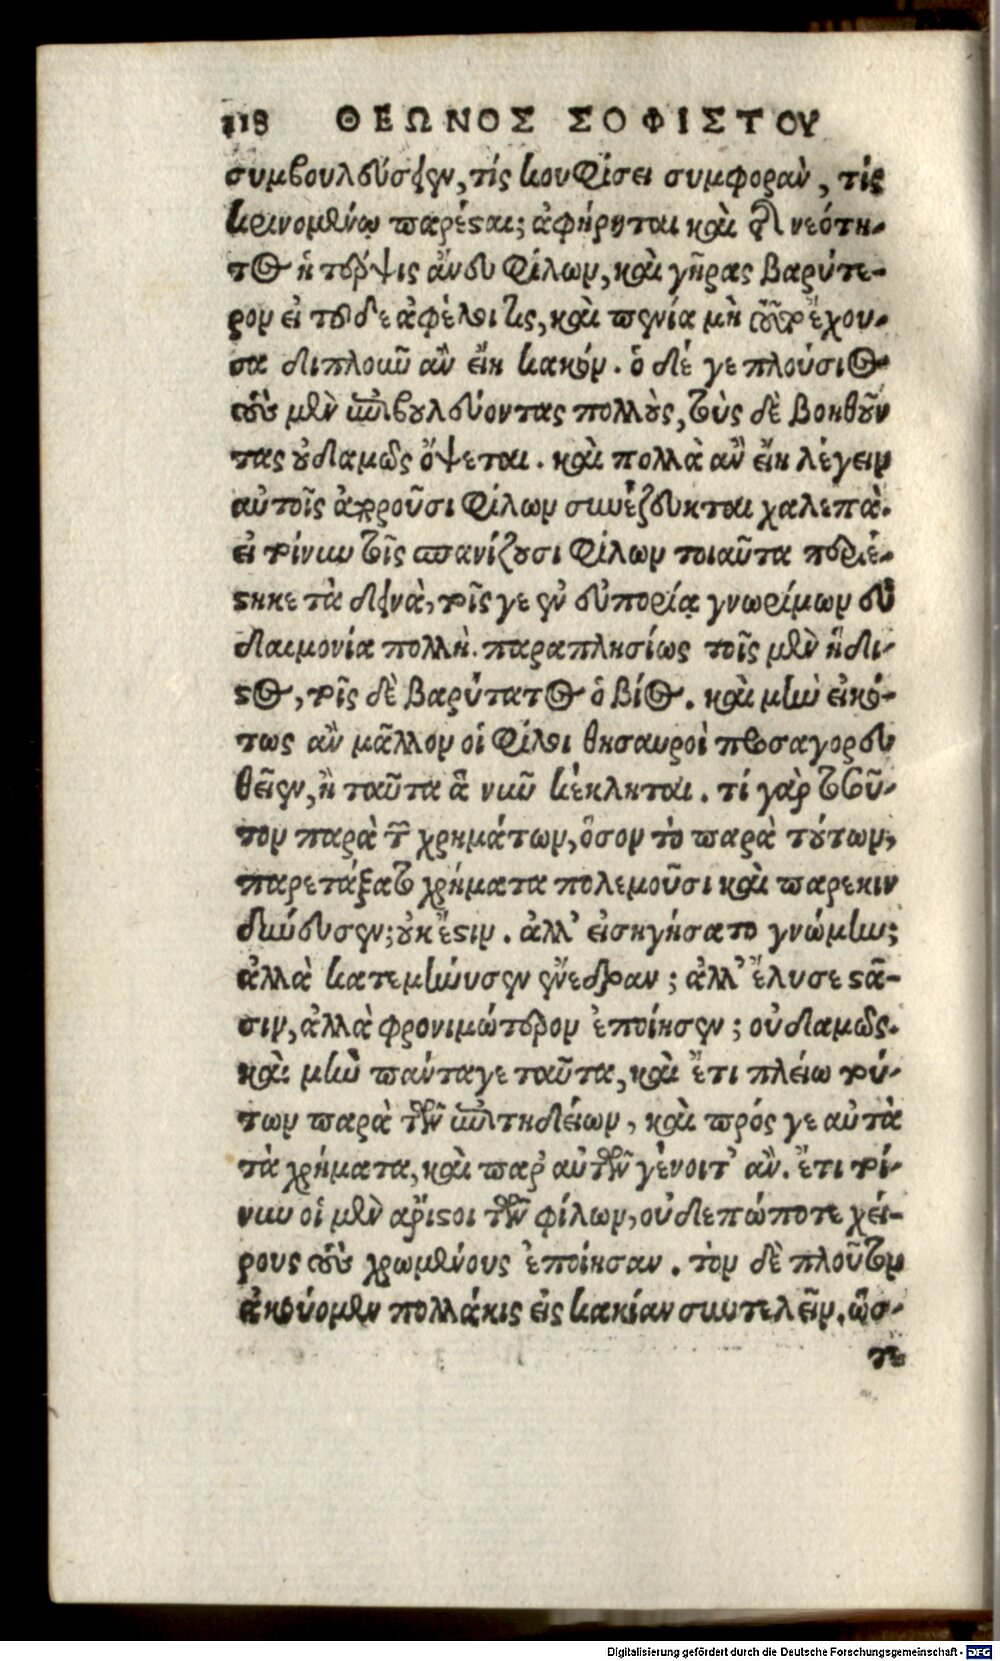 118 ΘΕΩΝΟΣ ΣΟΦΙΣΤΟΥ
συμβουλεύσειεν, τίς κουφίσει συμφοραν, τίς
κρινομένῳ παρέσται; ἀφήρηται καὶ τῆς νεότη-
τος ἡ τέρψις ἄνευ φίλων, καὶ γῆρας βαρύτε-
ρον εἰ τοῦδε ἀφέλοι τις, καὶ πενία μὴ τοῦτ' ἔχου-
σα διπλοῦν ἂν εἴη κακόν. ὁ δέ γε πλούσιος
τοὺς μὲν ἐπιβουλεύοντας πολλοὺς, τοὺς δὲ βοηθοῦν
τας οὐδαμῶς ὄψεται. καὶ πολλὰ ἂν εἴη λέγειν
αὐτοῖς ἀποροῦσι φίλων συνέζευκται χαλεπὰ.
εἰ τοίνυν τοῖς σπανίζουσι φίλων τοιαῦτα περιέ-
στηκε τὰ δεινὰ, τοῖς γε ἐν εὐπορίᾳ γνωρίμων εὐ
δαιμονία πολλή. παραπλησίως τοῖς μὲν ἥδι-
στος, τοῖς δὲ βαρύτατος ὁ βίος. καὶ μὴν εἰκό-
τως ἂν μᾶλλον οἱ φίλοι θησαυροὶ προσαγορευ
θεῖεν, ἢ ταῦτα ἃ νῦν κέκληται. τί γὰρ τοσοῦ-
τον παρὰ τῶν χρημάτων, ὅσον τὸ παρὰ τούτων,
παρετάξατο χρήματα πολεμοῦσι καὶ παρεκιν
δύνευσεν; οὐκ ἔστιν. ἀλλ' εἰσηγήσατο γνώμην;
ἀλλὰ κατεμήνυσεν ἐνέδραν; ἀλλ' ἔλυσε στά-
σιν, ἀλλὰ φρονιμώτερον ἐποίησεν; οὐδαμῶς.
καὶ μὴν πάνταγε ταῦτα, καὶ ἔτι πλείω τού-
των παρὰ τῶν ἐπιτηδείων, καὶ πρός γε αὐτὰ
τὰ χρήματα, καὶ παρ' αὐτῶν γένοιτ' ἄν. ἔτι τοί-
νυν οἱ μὲν ἄριστοι τῶν φίλων, οὐδεπώποτε χεί-
ρους τοὺς χρωμένους ἐποίησαν. τὸν δὲ πλοῦτον
ἀκούομεν πολλάκις εἰς κακίαν συντελεῖν, ὥσ-
τε
Digitalisierung gefördert durch die Deutsche Forschungsgemeinschaft - DFG